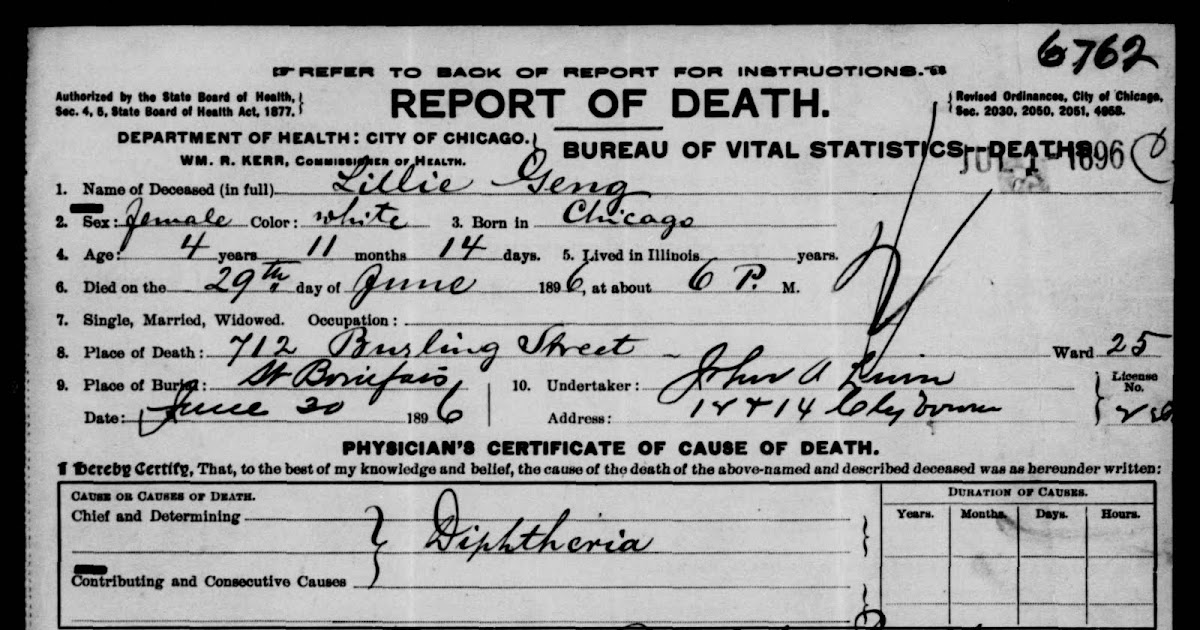 6762
REFER TO BACK OF REPORT FOR INSTRUCTIONS.
Authorized by the State Board of Health,
Sec. 4, 5, State Board of Health Act, 1877.
REPORT OF DEATH.
Revised Ordinances, City of Chicago,
Sec. 2030, 2050, 2051, 4658.
DEPARTMENT OF HEALTH: CITY OF CHICAGO.
WM. R. KERR, COMMISSIONER OF HEALTH.
BUREAU OF VITAL STATISTICS--DEATHS.
JUL 1 1896
1. Name of Deceased (in full) Lillie Geng
2. Sex: female Color: white 3. Born in Chicago
4. Age: 4 years 11 months 14 days. 5. Lived in Illinois years.
6. Died on the 29th day of June 1896, at about 6 P. M.
7. Single, Married, Widowed. Occupation:
8. Place of Death: 712 Burling Street Ward 25
9. Place of Burial: St Bonifais 10. Undertaker: John A License No.
Date: June 30 1896 Address:
PHYSICIAN'S CERTIFICATE OF CAUSE OF DEATH.
I Hereby Certify, That, to the best of my knowledge and belief, the cause of the death of the above-named and described deceased was as hereunder written:
CAUSE OR CAUSES OF DEATH. DURATION OF CAUSES.
Chief and Determining Years. Months. Days. Hours.
Diphtheria
Contributing and Consecutive Causes